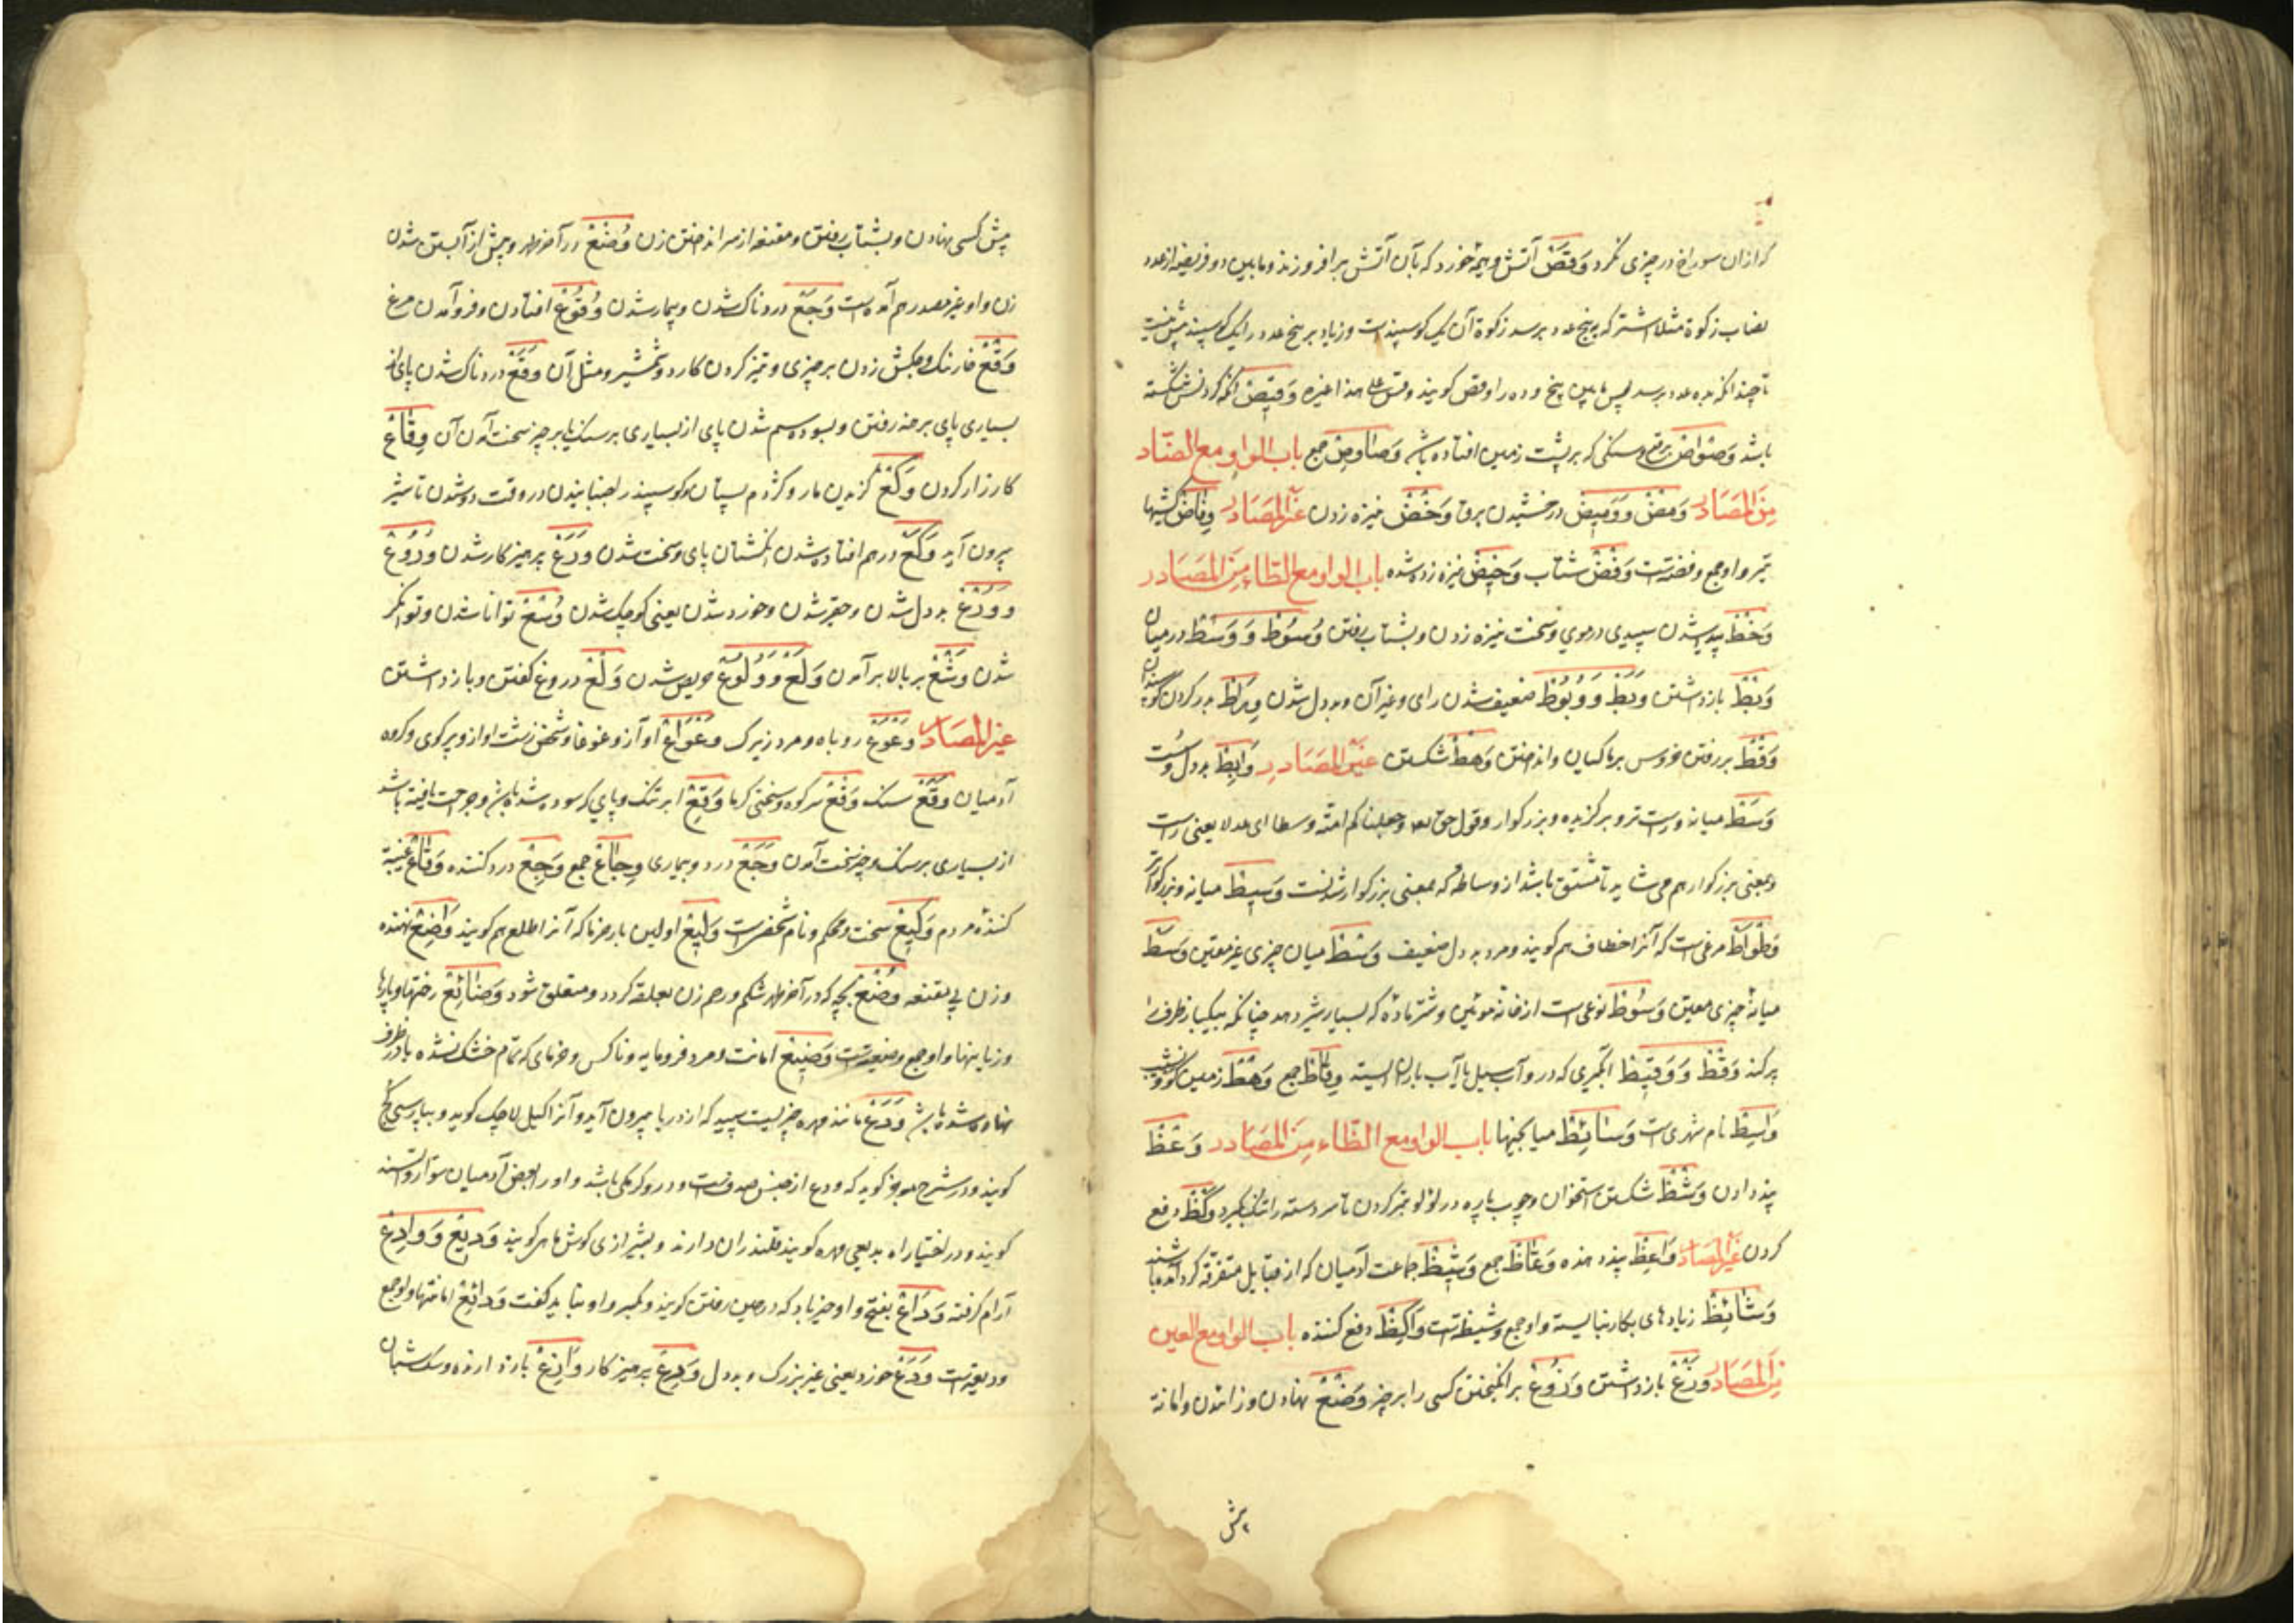 که ازان سوراخ در چیزی نکرد وَقَصْ آتش و هیمهٔ خورد که بآن آتش برافروزند و مابین دو فریضه از عدد
نصاب زکوة مثلا شتر که به پنج عدد برسد زکوة آن یک کوسپندست و زیاد بر پنج عدد را یک کوسپند پیش نیست
تا چندانکه به ده عدد برسد پس مابین پنج و ده را وقص کویند وقس علی هذا غیره وَقِیْص آنکه کردنش شکسته
باشد وَصْوَاصْ برقع و سنکی که بر پشت زمین افتاده باشد وَصَاوِصْ جمع باب الواو مع الضّاد
مِنَ المَصَادر وَمْضْ وَوَمِیضْ درخشیدن برق وَخْضْ نیزه زدن غَیرُ المَصَادر وِفَاضْ کیشهای
تیر و او جمع وفضه است وَفْضْ شتاب وَخِیضْ نیزه زده شده باب الواو مع الطّاء مِنَ المَصَادر
وَخْطْ پدید شدن سپیدی در موی و سخت نیزه زدن و بشتاب رفتن وُسُوْطْ وَوَسْطْ در میان
وَبْطْ بازداشتن وَبَطْ وَوُبُوْطْ ضعیف شدن رای و غیر آن و بددل شدن وِرَاطْ بدر کردن کوسپندان
وَقْطْ بررفتن خروس بر ماکیان و انداختن وَهْطْ شکستن غَیرُ المَصَادِر وَابِطْ بددل و سست
وَسَطْ میانه و راست تر و برگزیده و بزرکوار و قول حق تعالی وجعلناکم امّة وسطا ای عدلا یعنی راست
و معنی بزرکوار هم می شاید تا مشتق باشد از وساطه که بمعنی بزرکوار شدنست وَسِیطْ میانه و بزرکوارتر
وَطْوَاطْ مرغی است که آنرا خطاف هم کویند و مرد بددل ضعیف وَسْطْ میان چیزی غیر معین وَسَطْ
میانهٔ چیزی معین وَسُوْطْ نوعی است از خانهٔ موئین و شتر ماده که بسیار شیر دهد چنانکه بیکبار ظرف را
پر کند وَقْطْ وَوَقِیْطْ آبگیری که درو آب سیل یا آب باران ایستد وِقَاطْ جمع وَهْطْ زمین کوونشیب
وَاسِطْ نام شهری است وَسَائِطْ میانجیها باب الواو مع الظّاء مِنَ المَصَادر وَعْظْ
پند دادن وَشْظْ شکستن استخوان و چوب پاره در لولو تیز کردن تا سر دسته را تنک بگیرد وَکْظْ دفع
کردن غَیرُ المَصَادر وَاعِظْ پند دهنده وَعَّاظْ جمع وَشِیظْ جماعت آدمیان که از قبایل متفرقه کرد آمده باشند
وَشَائِظْ زیادهای بکار نبایسته و او جمع وشیظه است وَاکِظْ دفع کننده باب الواو مع العین
مِنَ المَصَادر وَزْعْ بازداشتن وَزُوْعْ برانکیختن کسی را بر چیز وَضْعْ نهادن و زائیدن و امانة
پیش
پیش کسی نهادن و بشتاب رفتن و مقنعه از سر انداختن زن وُضْعْ در آخر طهر و پیش از آبستن شدن
زن و او غیر مصدر هم آمده است وَجَعْ دردناک شدن و بیمار شدن وُقُوْعْ افتادن و فرود آمدن مرغ
وَقْعْ خارتک و چکش زدن بر چیزی و تیز کردن کارد و شمشیر و مثل آن وَقَعْ دردناک شدن پای از
بسیاری پای برهنه رفتن و سوده سم شدن پای از بسیاری بر سنک یا بر چیز سخت آمدن آن وِقَاعْ
کارزار کردن وَکْعْ کزیدن مار و کژدم پستان کوسپند را جنبانیدن در وقت دوشیدن تا شیر
بیرون آید وَکَعْ درهم افتاده شدن انکشتان پای و سخت شدن وَرَعْ پرهیزکار شدن وُرُوْعْ
وَوُرْعْ بددل شدن و حقیر شدن و خورد شدن یعنی کوچک شدن وُسْعْ توانا شدن و توانکر
شدن وَشْعْ بر بالا برآمدن وَلَعْ وَوُلُوْعْ حریص شدن وَلْعْ دروغ کفتن و بازداشتن
غیر المَصَادر وَعْوَعْ روباه و مرد زیرک وَعْوَاعْ آواز و غوغا و شخص زشت آواز و پرکوی و کروه
آدمیان وَقْعْ سنک وَقْعْ سر کوه و سختی کرما وَقِعْ ابر تنک و پای که سوده شده باشد و جراحت یافته باشد
از بسیاری بر سنک و چیز سخت آمدن وَجَعْ درد و بیماری وِجَاعْ جمع وَجِعْ درد کننده وَقَّاعْ غیبة
کنندهٔ مردم وَکِیعْ سخت و محکم و نام شخصی است وَلِیعْ اولین بار خرما که آنرا طلع هم کویند وَاضِعْ نهنده
و زن بی مقنعه وُضْعْ بچه که در آخر طهر شکم و رحم زن بعلقه کردد و متعلق شود وَضَائِعْ رختها و بارها
و زیانها و او جمع وضیعه است وَضِیعْ امانت و مرد فرومایه و ناکس و خرمای که تمام خشک نشده باشد در ظرف
نهاده شده باشد وَدَعْ مانند مهره چیزیست سپید که از دریا بیرون آید و آنرا اکیل لاجک کوید و بپارسی کچ
کویند و در شرح موجز کوید که ودع از جنس صدف است و درو کرمکی باشد و او را بعض آدمیان سوار والسنه
کویند و در اختیارات بدیعی مهره کویند قلندران دارند و بشیرازی کوش ماهی کویند وَدِیْعْ وَوَادِعْ
آرام کرفته وَدَاعْ بفتح واو خیرباد که در حین رفتن کویند و بکسر واو نباید کفت وَدَائِعْ امانتها و او جمع
ودیعه است وَرَعْ خورد یعنی غیر بزرک و بددل وَرِعْ پرهیزکار وَازِعْ بازدارنده و سک شبان